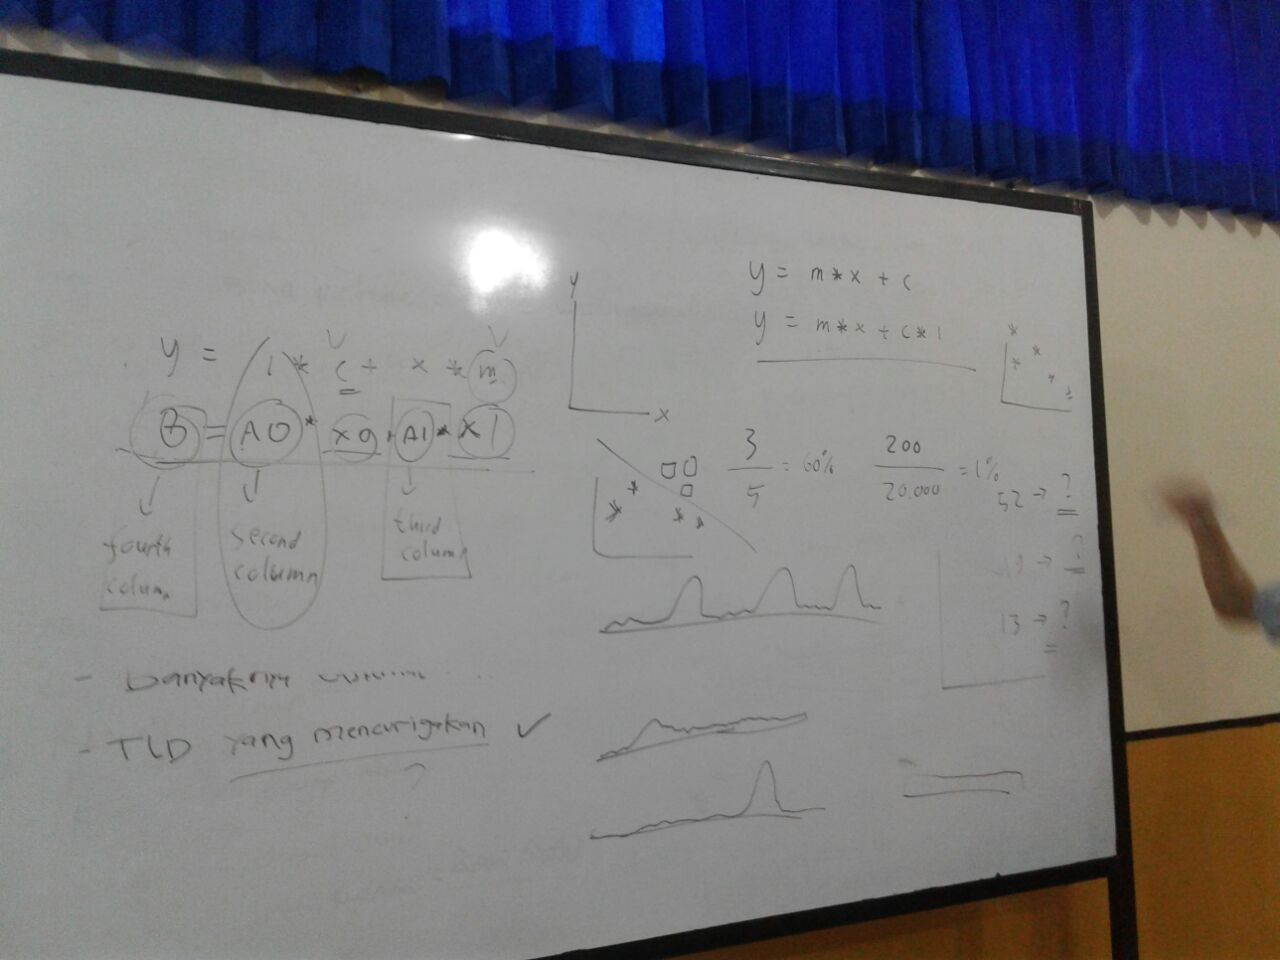 y = 1 * c + x * m
B = A0 * x0 + A1 * x1
fourth
column
second
column
third
column
- banyaknya
- TLD yang mencurigakan ✓
?
y
x
y = m*x + c
y = m*x + c*1
3/5 = 60%
200/20.000 = 1%
52 → ?
19 → ?
13 → ?